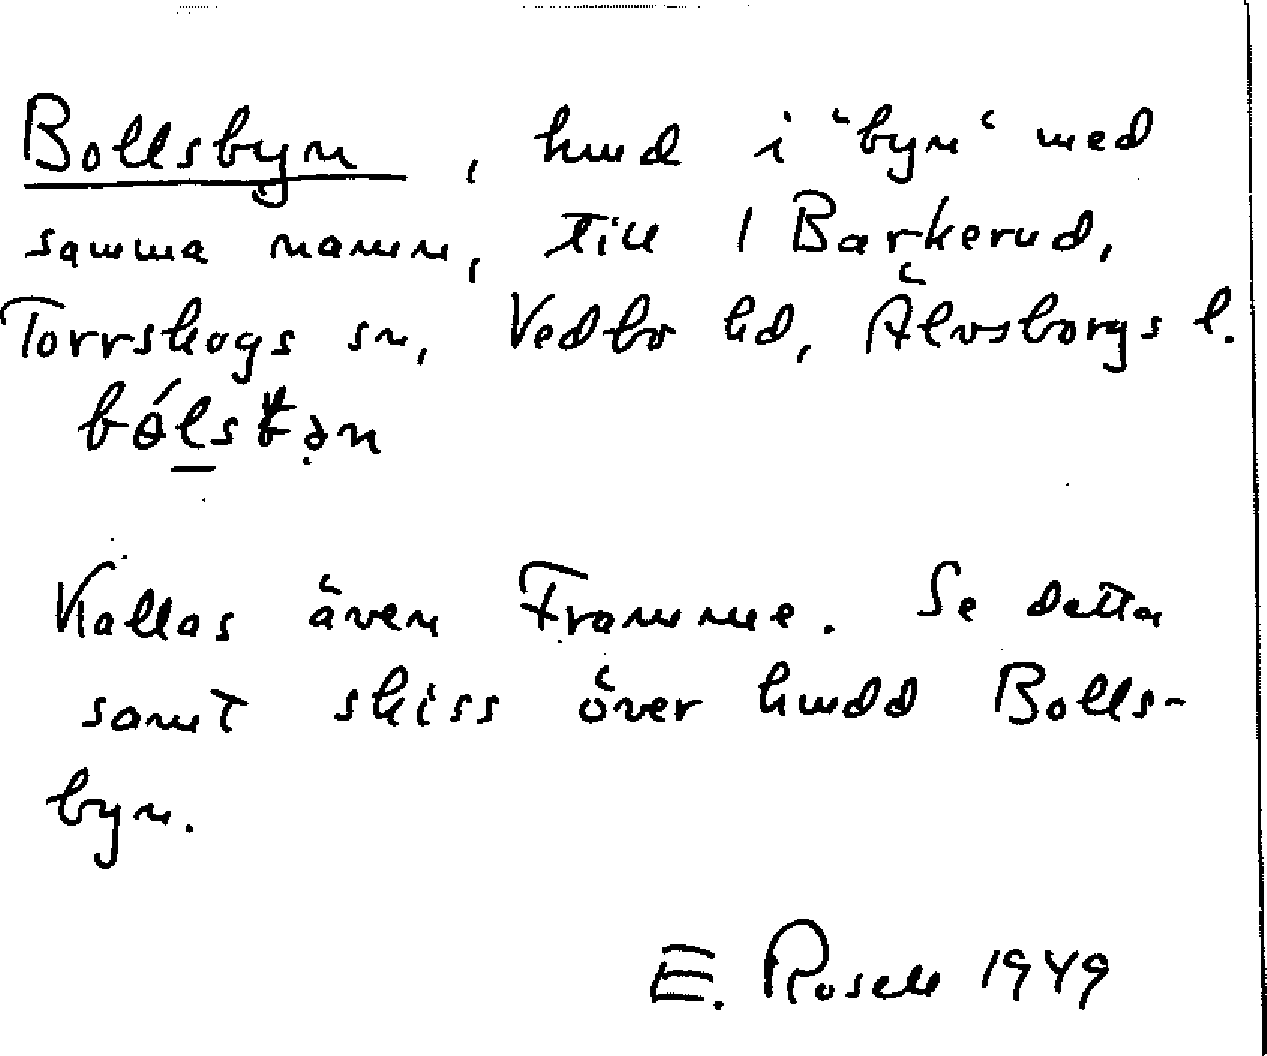 Bollsbyn, hmd i "byn" med
samma namn, till 1 Barkerud,
Torrskogs sn, Vedbo hd, Älvsborgs l.
Kallas även Framme. Se detta
samt skiss över hmdd Bolls-
byn.
E. Rosell 1949